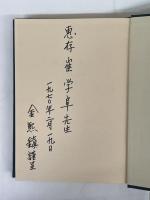 惠存
崔学阜先生
一九七〇年二月一九日
金熙鎮謹呈